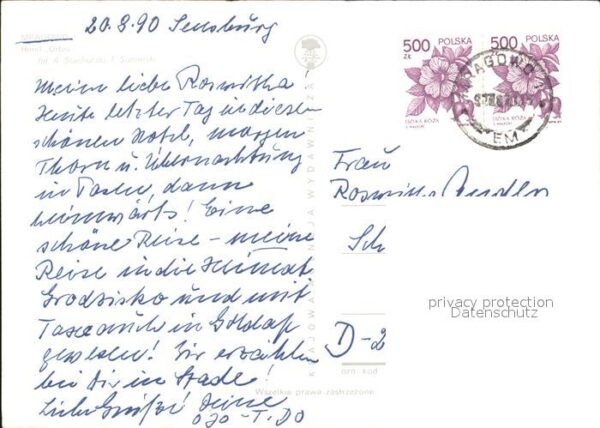 20.8.90 Sensburg
Hotel „Orbis"
fot. A. Stachurski, T. Sumiński
Meine liebe Roswitha
Heute letzter Tag in diesem
schönen Hotel, morgen
Thorn u. Übernachtung
in Posen, dann
heimwärts! Eine
schöne Reise – meine
Reise in die Heimat
Grodzisko und mit
Taxe auch in Goldap
gewesen! Wir erzählen
bei Dir in Stade!
Liebe Grüße Deine
KRAJOWA AGENCJA WYDAWNICZA
Wszelkie prawa zastrzeżone
500 ZŁ POLSKA
DZIKA RÓŻA
500 POLSKA
DZIKA RÓŻA
MRĄGOWO 1
EM
Frau
Roswitha
Sch
privacy protection
Datenschutz
D-2
ozn. kod